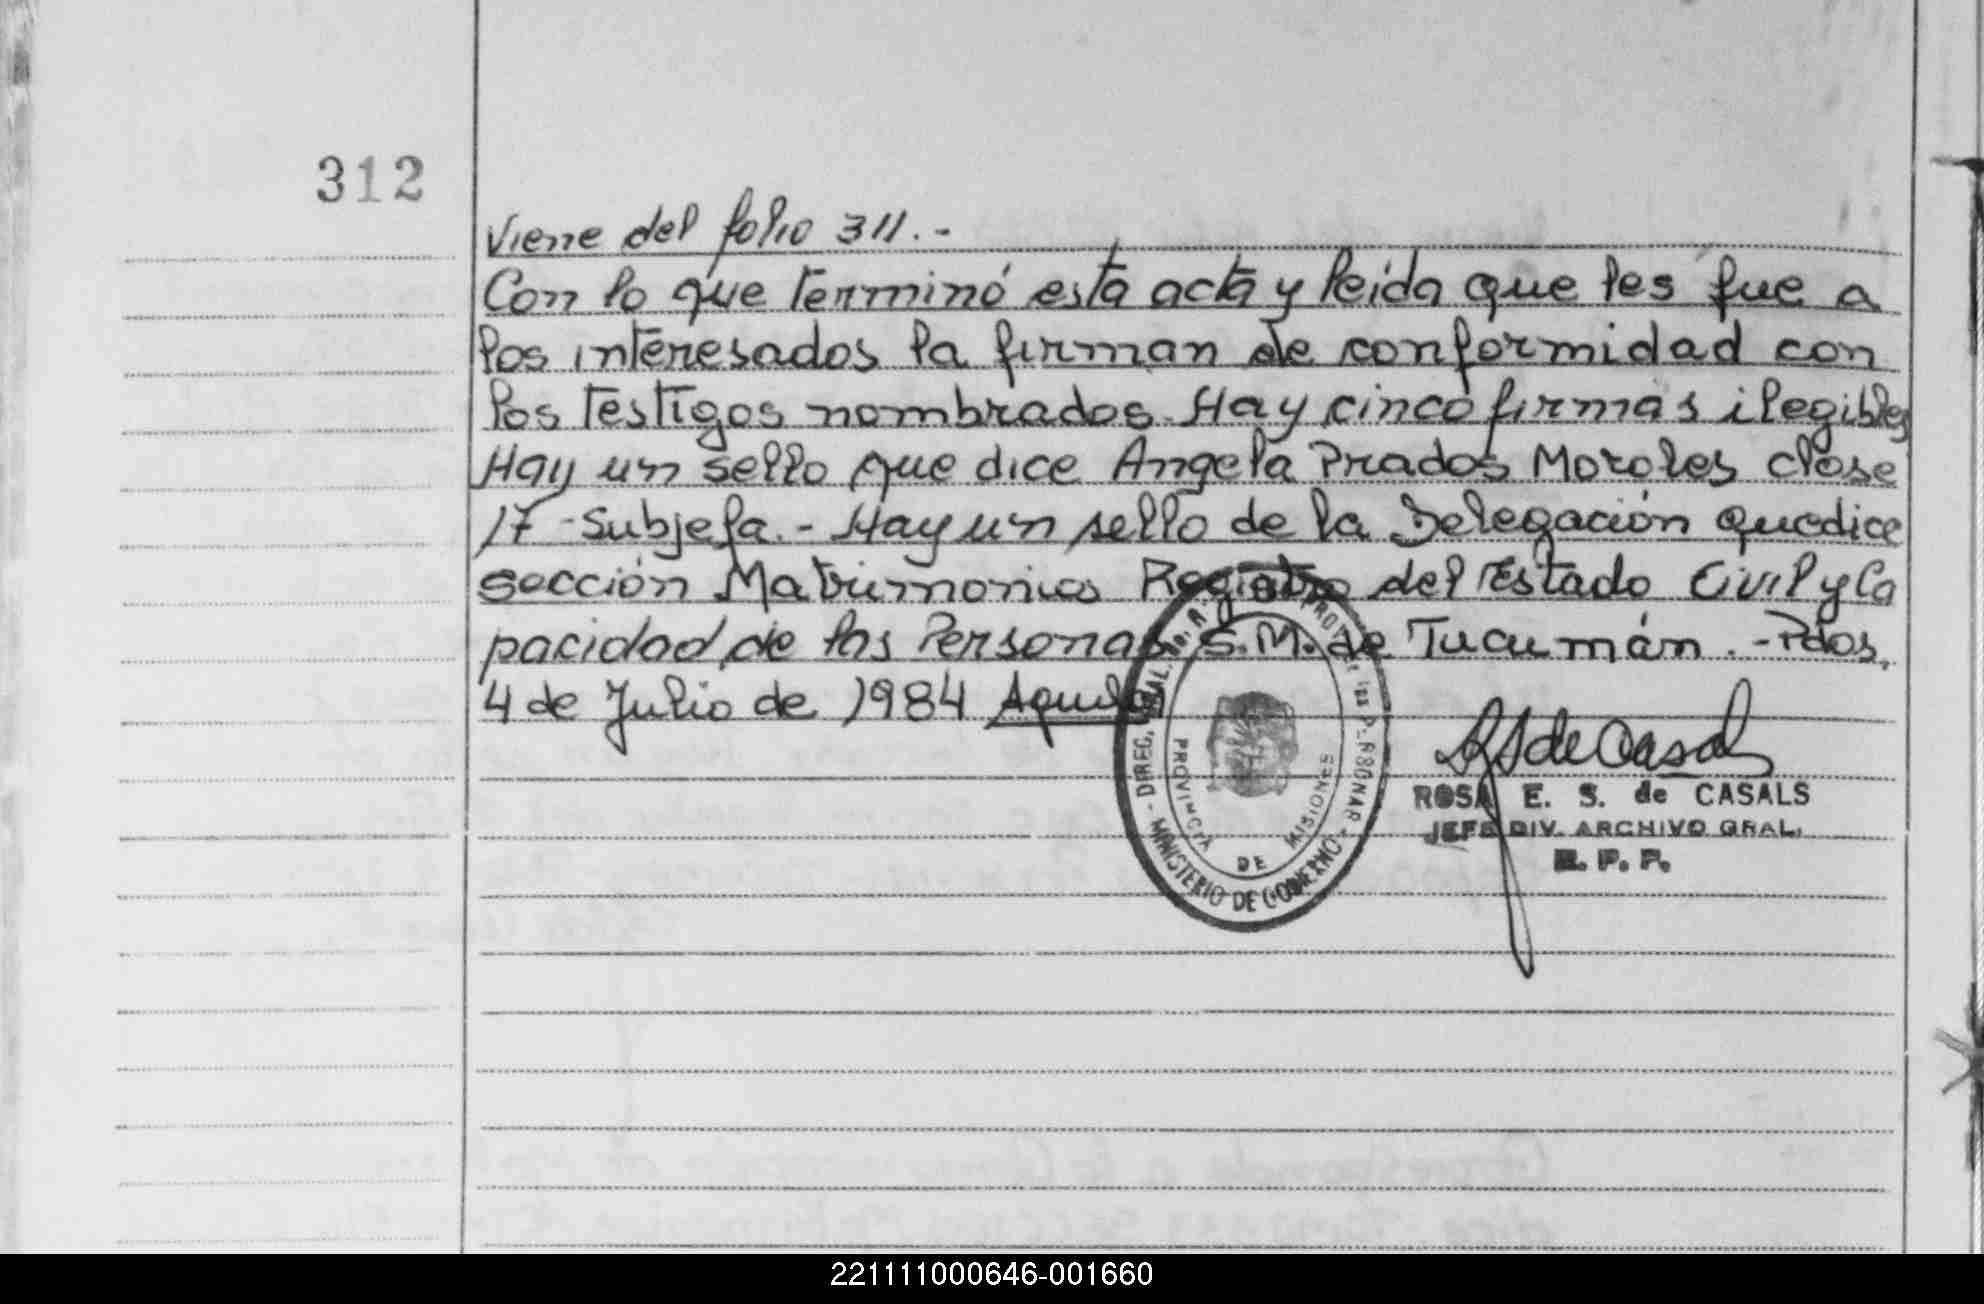 312
Viene del folio 311.-
Con lo que terminó esta acta y leída que les fue a
los interesados la firman de conformidad con
los testigos nombrados. Hay cinco firmas ilegibles
Hay un sello que dice Angela Prados Morales clase
17 - Subjefa. - Hay un sello de la Delegación que dice
sección Matrimonios Registro del Estado Civil y Ca
pacidad de las Personas S.M. de Tucumán. - Pdas,
4 de Julio de 1984
ROSA E. S. de CASALS
JEFE DIV. ARCHIVO GRAL.
R. P. P.
PROVINCIA DE MISIONES
- MINISTERIO DE GOBIERNO -
221111000646-001660